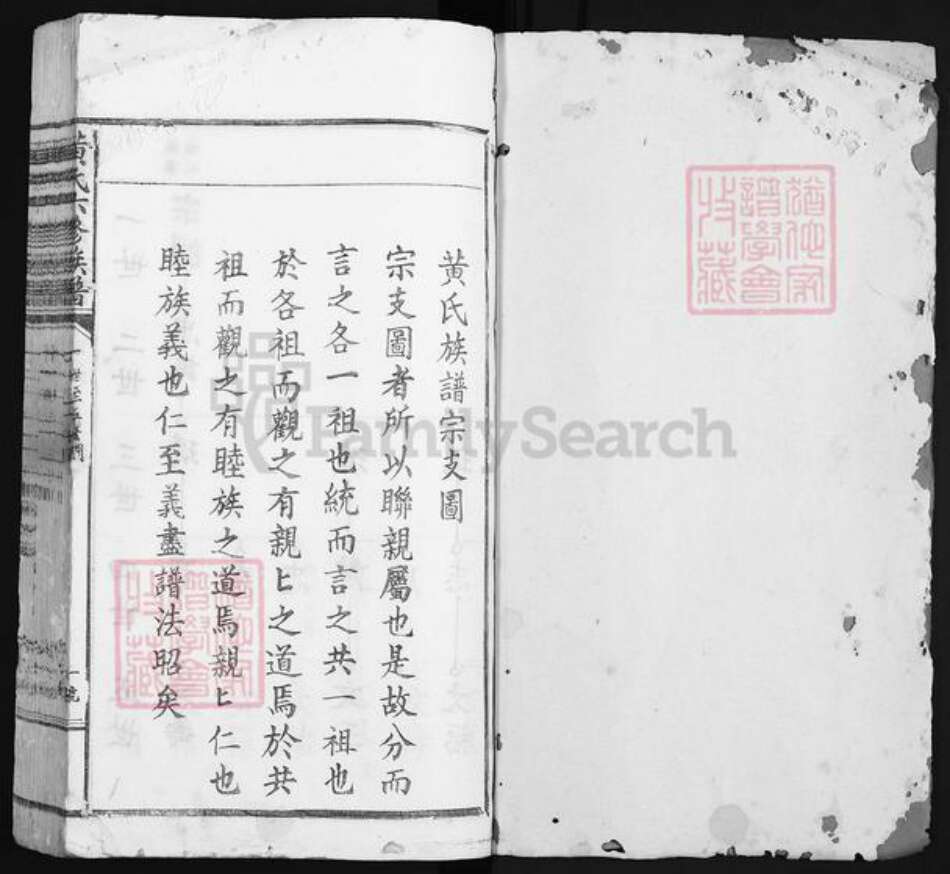 猶他家
譜學會
收藏
黃氏族譜宗支圖
宗支圖者所以聯親屬也是故分而
言之各一祖也統而言之共一祖也
於各祖而觀之有親〻之道焉於共
祖而觀之有睦族之道焉親〻仁也
睦族義也仁至義盡譜法昭矣
猶他家
譜學會
收藏
黃氏六修族譜
FamilySearch